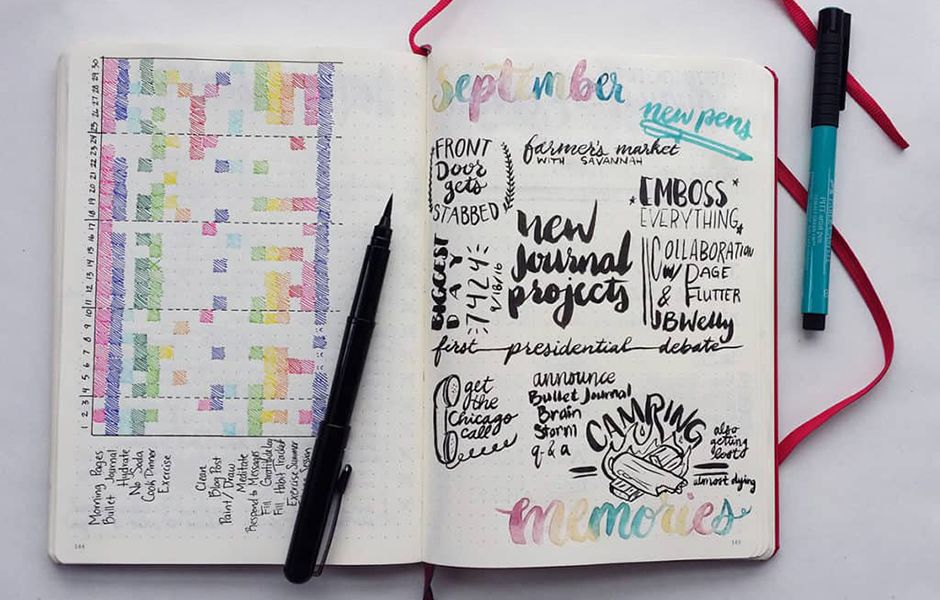 30
29
28
27
26
25
24
23
22
21
20
19
18
17
16
15
14
13
12
11
10
9
8
7
6
5
4
3
2
1
Morning Pages
Bullet Journal
Hydrate
No Soda
Cook Dinner
Exercise
Clean
Blog Post
Paint / Draw
Meditate
Respond to Messages
Fill
Fill Habit Tracker
Exercise
144
september
new pens
FRONT
Door
gets
STABBED
farmer's market
WITH SAVANNAH
EMBOSS
EVERYTHING
new
Journal
projects
COLLABORATION
w/ PAGE
& FLUTTER
JBWelly
BIGGEST
DAY
7424
9/18/16
first presidential debate
get
the
Chicago
call
announce
Bullet Journal
Brain
Storm
q & a
CAMPING
also
getting
boots
almost dying
memories
145